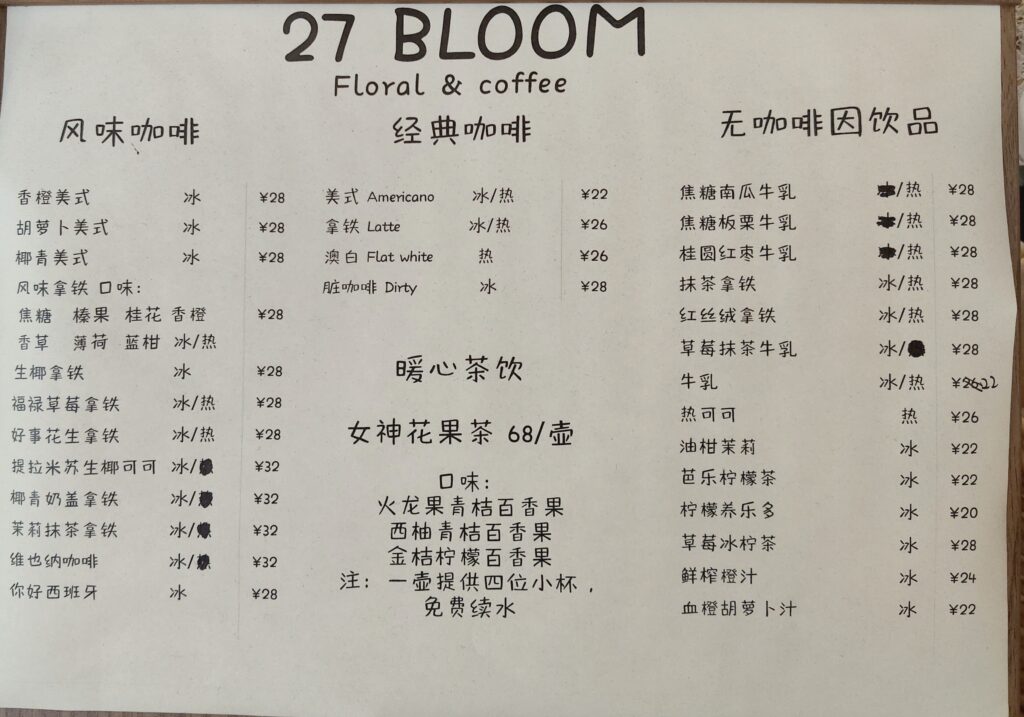 27 BLOOM
Floral & coffee
风味咖啡
香橙美式 冰 ¥28
胡萝卜美式 冰 ¥28
椰青美式 冰 ¥28
风味拿铁 口味：
焦糖 榛果 桂花 香橙 ¥28
香草 薄荷 蓝柑 冰/热
生椰拿铁 冰 ¥28
福禄草莓拿铁 冰/热 ¥28
好事花生拿铁 冰/热 ¥28
提拉米苏生椰可可 冰/ ¥32
椰青奶盖拿铁 冰/ ¥32
茉莉抹茶拿铁 冰/ ¥32
维也纳咖啡 冰/ ¥32
你好西班牙 冰 ¥28
经典咖啡
美式 Americano 冰/热 ¥22
拿铁 Latte 冰/热 ¥26
澳白 Flat white 热 ¥26
脏咖啡 Dirty 冰 ¥28
暖心茶饮
女神花果茶 68/壶
口味：
火龙果青桔百香果
西柚青桔百香果
金桔柠檬百香果
注： 一壶提供四位小杯，
免费续水
无咖啡因饮品
焦糖南瓜牛乳 /热 ¥28
焦糖板栗牛乳 /热 ¥28
桂圆红枣牛乳 /热 ¥28
抹茶拿铁 冰/热 ¥28
红丝绒拿铁 冰/热 ¥28
草莓抹茶牛乳 冰/ ¥28
牛乳 冰/热 ¥22
热可可 热 ¥26
油柑茉莉 冰 ¥22
芭乐柠檬茶 冰 ¥22
柠檬养乐多 冰 ¥20
草莓冰柠茶 冰 ¥28
鲜榨橙汁 冰 ¥24
血橙胡萝卜汁 冰 ¥22